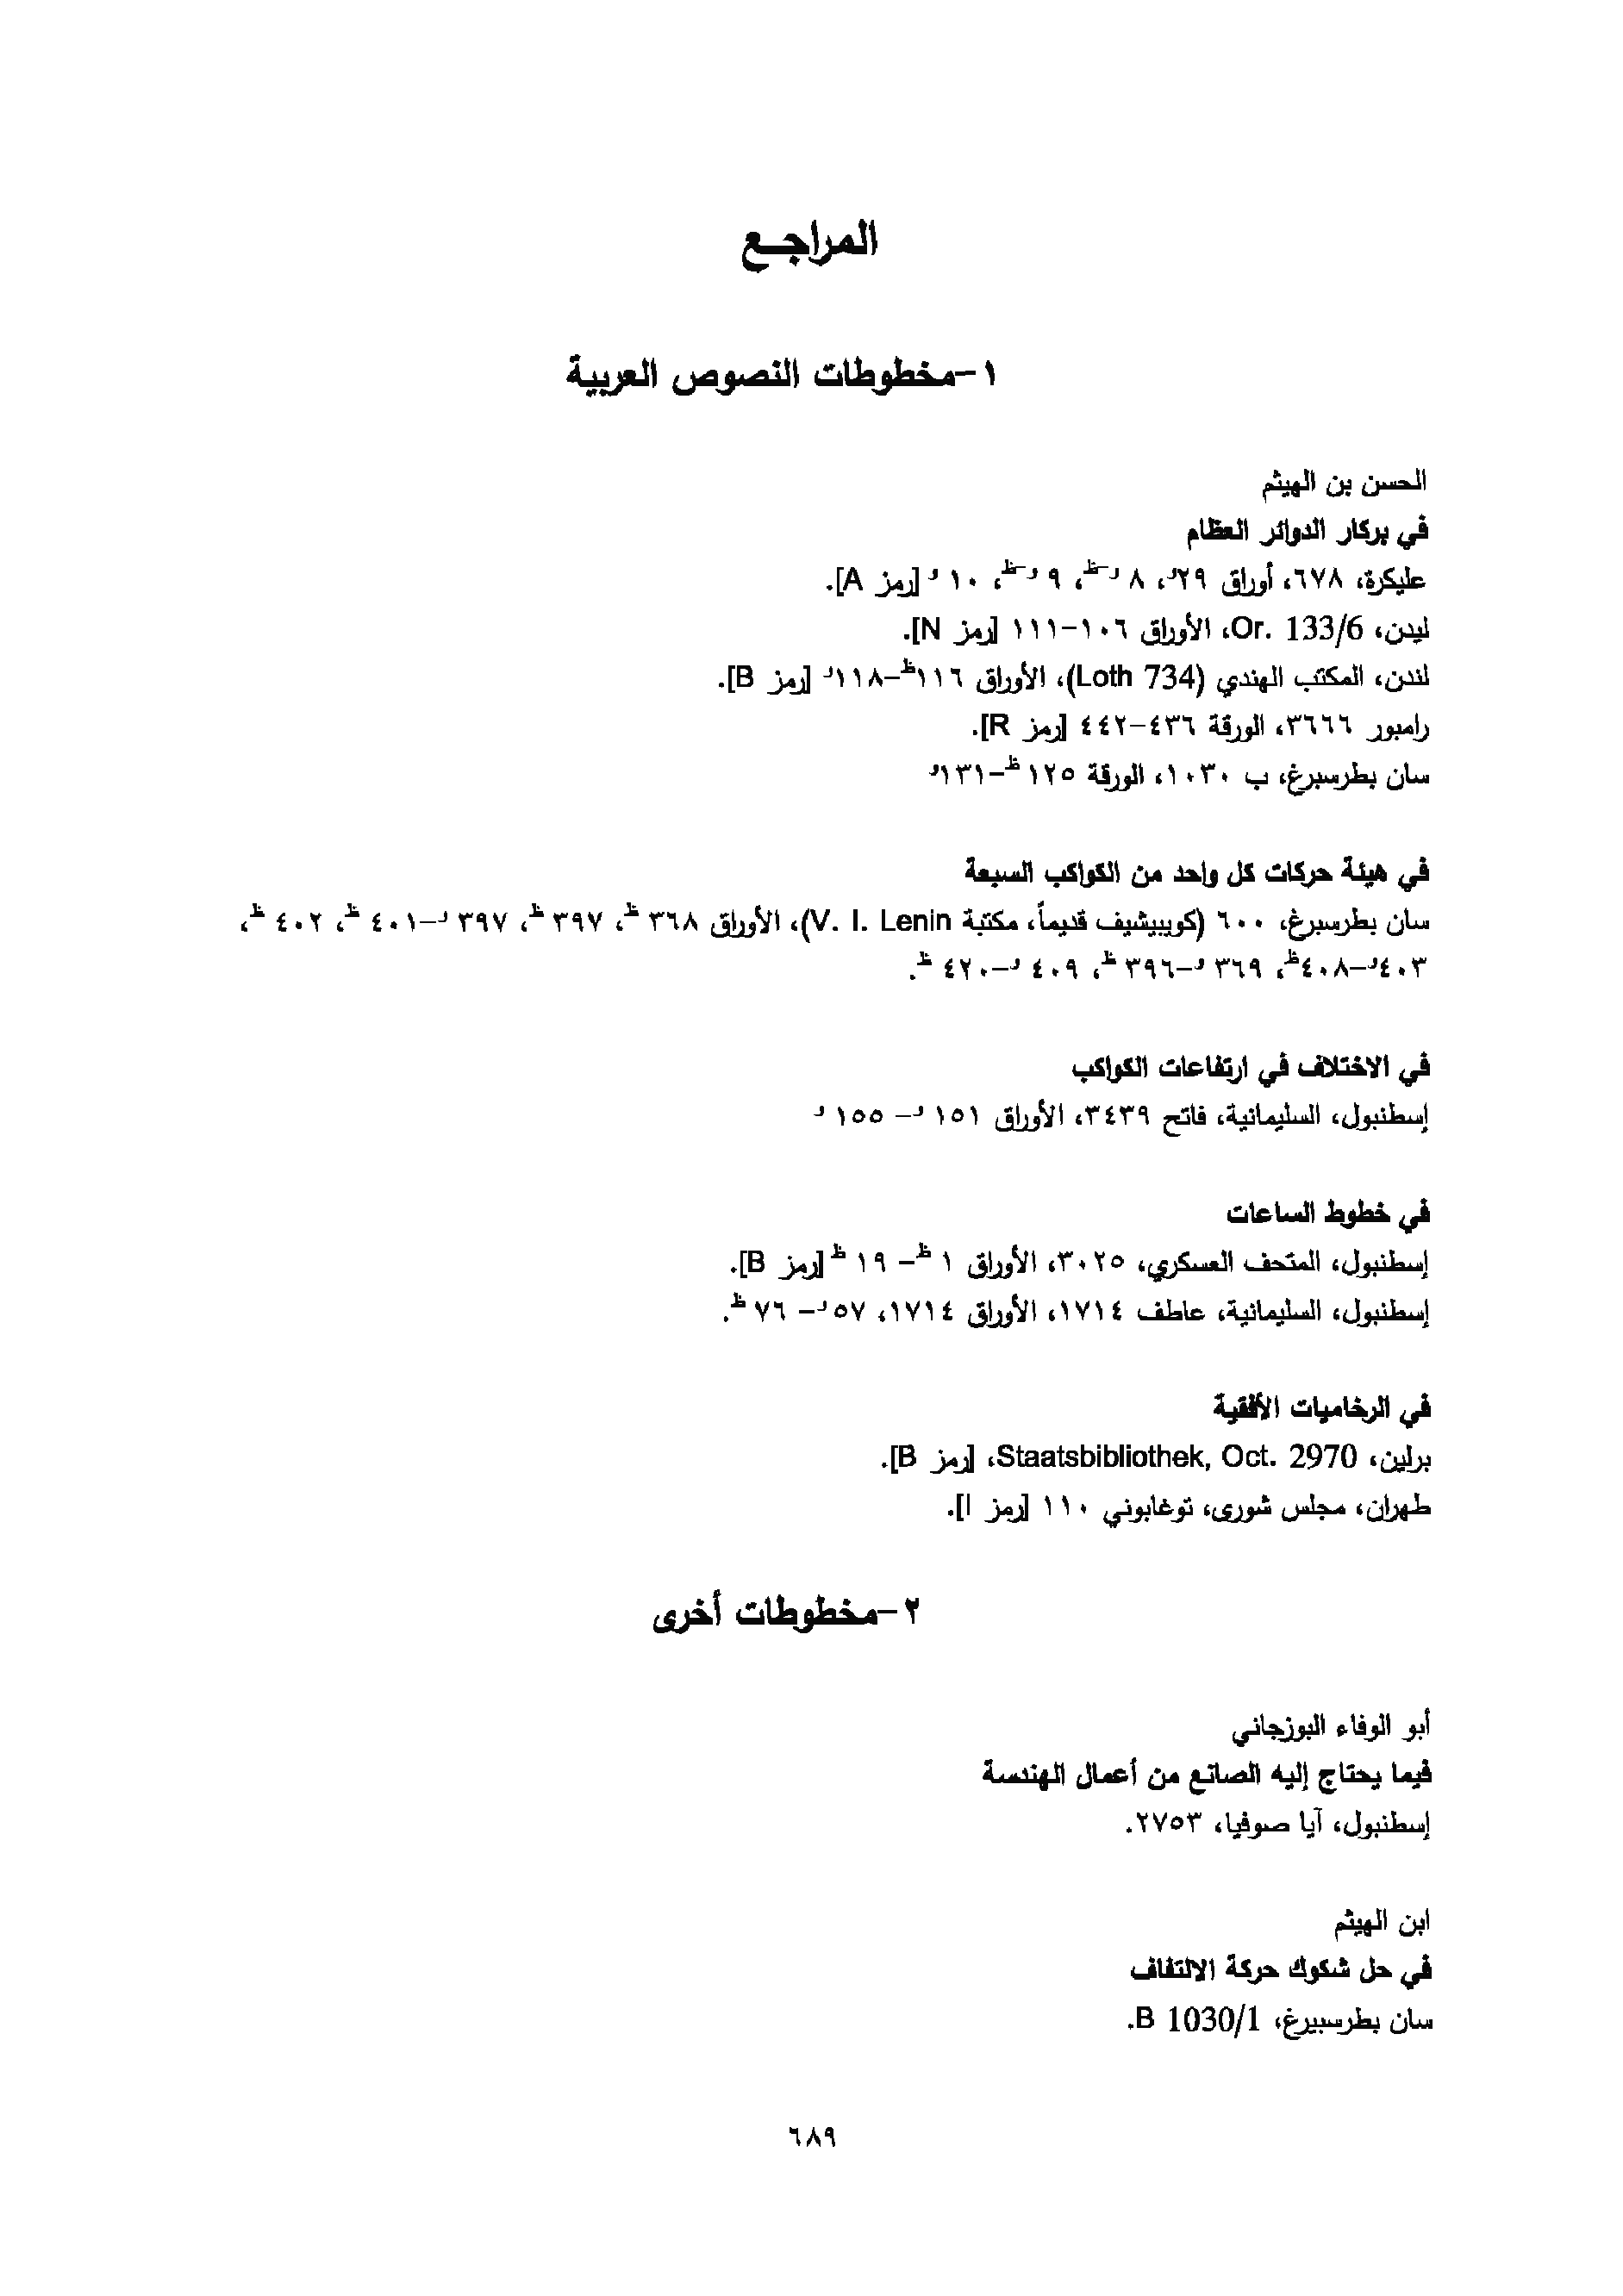 المراجـع
١-مخطوطات النصوص العربية
الحسن بن الهيثم
في بركار الدوائر العظام
عليكرة، ٦٧٨، أوراق ٢٩ر، ٨ ر-ظ، ٩ ر-ظ، ١٠ ر [رمز A].
ليدن، Or. 133/6، الأوراق ١٠٦-١١١ [رمز N].
لندن، المكتب الهندي (Loth 734)، الأوراق ١١٦ظ-١١٨ر [رمز B].
رامبور ٣٦٦٦، الورقة ٤٣٦-٤٤٢ [رمز R].
سان بطرسبرغ، ب ١٠٣٠، الورقة ١٢٥ ظ-١٣١ر
في هيئة حركات كل واحد من الكواكب السبعة
سان بطرسبرغ، ٦٠٠ (كويبيشيف قديماً، مكتبة V. I. Lenin)، الأوراق ٣٦٨ ظ، ٣٩٧ ظ، ٣٩٧ ر-٤٠١ ظ، ٤٠٢ ظ،
٤٠٣ر-٤٠٨ظ، ٣٦٩ ر-٣٩٦ ظ، ٤٠٩ ر-٤٢٠ ظ.
في الاختلاف في ارتفاعات الكواكب
إسطنبول، السليمانية، فاتح ٣٤٣٩، الأوراق ١٥١ ر- ١٥٥ ر
في خطوط الساعات
إسطنبول، المتحف العسكري، ٣٠٢٥، الأوراق ١ ظ- ١٩ ظ [رمز B].
إسطنبول، السليمانية، عاطف ١٧١٤، الأوراق ١٧١٤، ٥٧ر- ٧٦ ظ.
في الرخاميات الأفقية
برلين، Staatsbibliothek, Oct. 2970، [رمز B].
طهران، مجلس شورى، توغابوني ١١٠ [رمز I].
٢-مخطوطات أخرى
أبو الوفاء البوزجاني
فيما يحتاج إليه الصانع من أعمال الهندسة
إسطنبول، آيا صوفيا، ٢٧٥٣.
ابن الهيثم
في حل شكوك حركة الالتفاف
سان بطرسبيرغ، B 1030/1.
٦٨٩